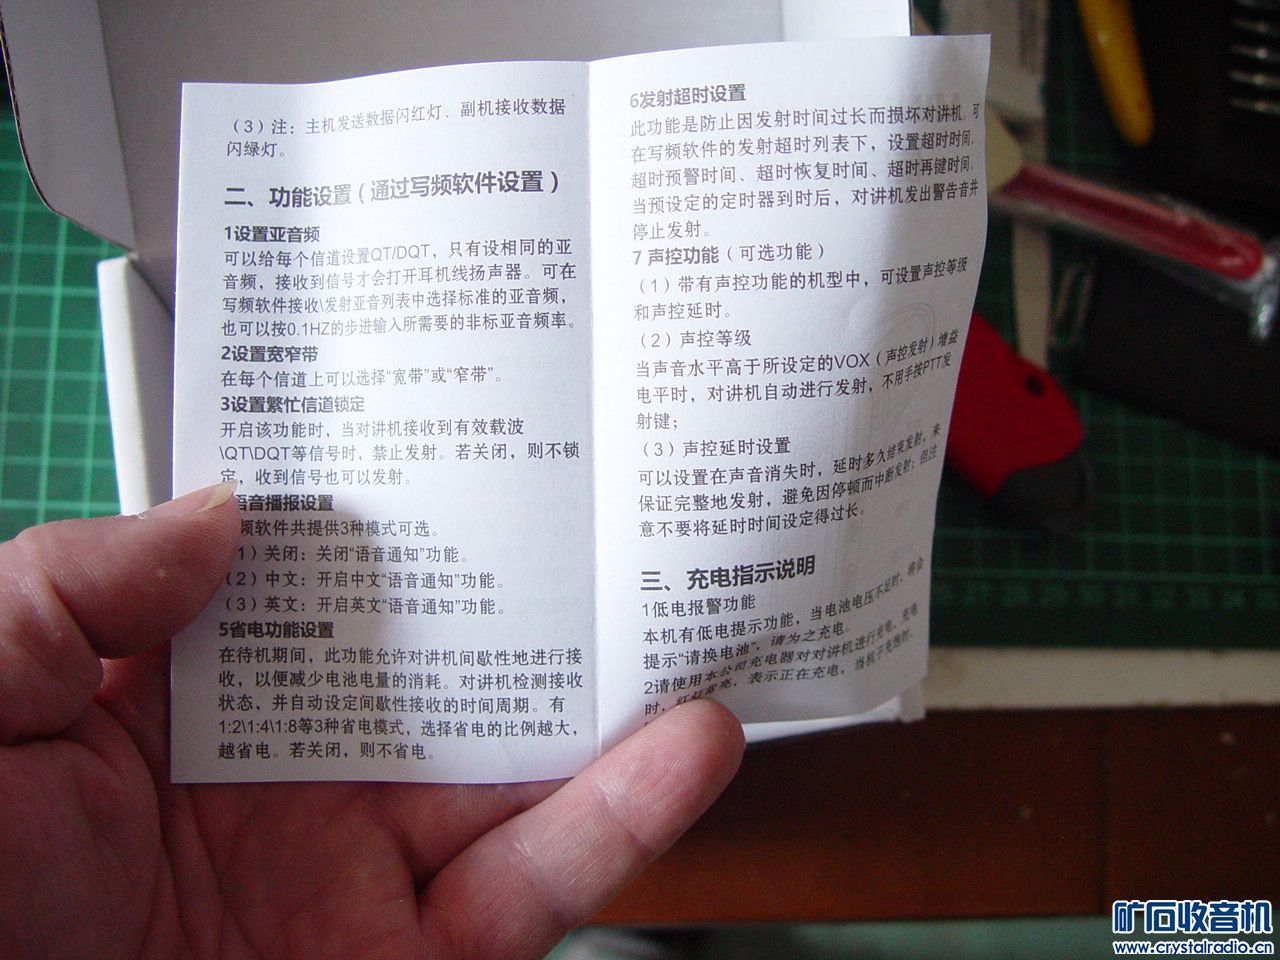 （3）注：主机发送数据闪红灯、副机接收数据
闪绿灯。
二、功能设置（通过写频软件设置）
1设置亚音频
可以给每个信道设置QT/DQT，只有设相同的亚
音频，接收到信号才会打开耳机线扬声器。可在
写频软件接收\发射亚音列表中选择标准的亚音频，
也可以按0.1HZ的步进输入所需要的非标亚音频率。
2设置宽窄带
在每个信道上可以选择“宽带”或“窄带”。
3设置繁忙信道锁定
开启该功能时，当对讲机接收到有效载波
\QT\DQT等信号时，禁止发射。若关闭，则不锁
定，收到信号也可以发射。
语音播报设置
频软件共提供3种模式可选。
1）关闭：关闭“语音通知”功能。
（2）中文：开启中文“语音通知”功能。
（3）英文：开启英文“语音通知”功能。
5省电功能设置
在待机期间，此功能允许对讲机间歇性地进行接
收，以便减少电池电量的消耗。对讲机检测接收
状态，并自动设定间歇性接收的时间周期。有
1:2\1:4\1:8等3种省电模式，选择省电的比例越大，
越省电。若关闭，则不省电。
6发射超时设置
此功能是防止因发射时间过长而损坏对讲机。可
在写频软件的发射超时列表下，设置超时时间、
超时预警时间、超时恢复时间、超时再键时间。
当预设定的定时器到时后，对讲机发出警告音并
停止发射。
7 声控功能（可选功能）
（1）带有声控功能的机型中，可设置声控等级
和声控延时。
（2）声控等级
当声音水平高于所设定的VOX（声控发射）增益
电平时，对讲机自动进行发射，不用手按PTT发
射键；
（3）声控延时设置
可以设置在声音消失时，延时多久结束发射，来
保证完整地发射，避免因停顿而中断发射；但注
意不要将延时时间设定得过长。
三、充电指示说明
1低电报警功能
本机有低电提示功能，当电池电压不足时，将会
提示“请换电池”，请为之充电。
2请使用本公司充电器对对讲机进行充电，充电
时，红灯常亮，表示正在充电，当机子充饱时，
矿石收音机
www.crystalradio.cn